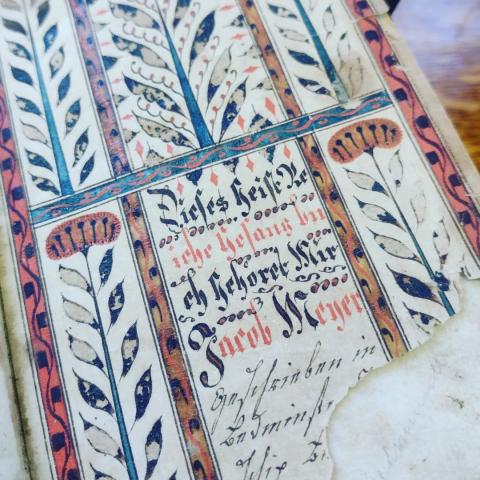 Dieses Geist Re
iche Gesang bu
ch Gehöret Mir
Jacob Meyer
Geschrieben in
Bedminst